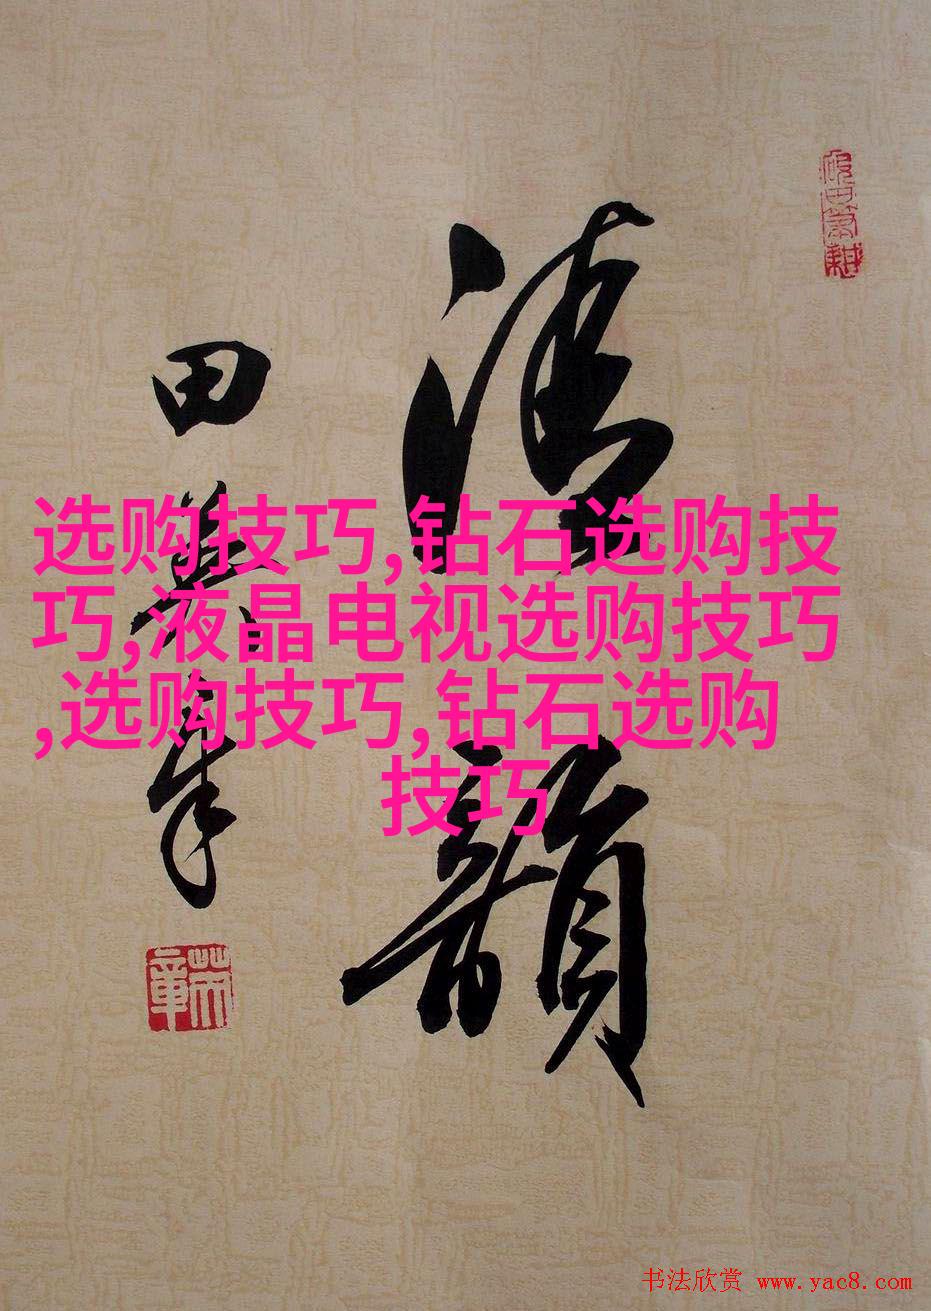 清韻
田英章
英章
选购技巧,钻石选购技
巧,液晶电视选购技巧
,选购技巧,钻石选购
技巧
书法欣赏 www.yac8.com